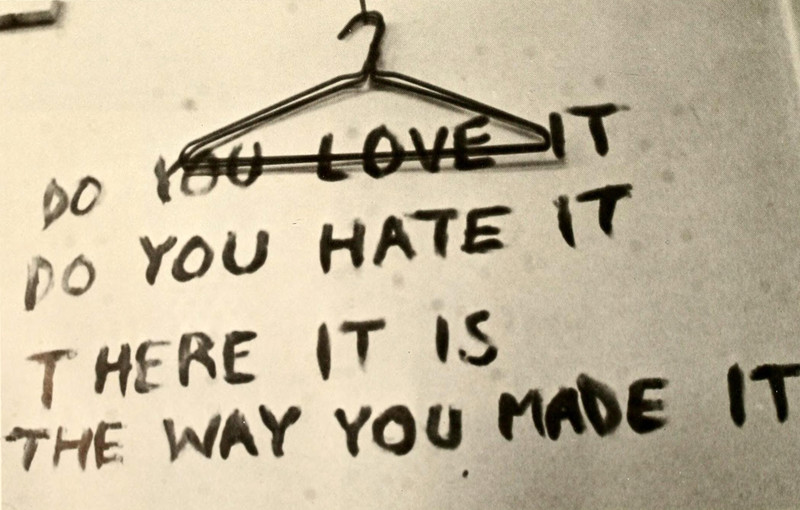 DO YOU LOVE IT
DO YOU HATE IT
THERE IT IS
THE WAY YOU MADE IT